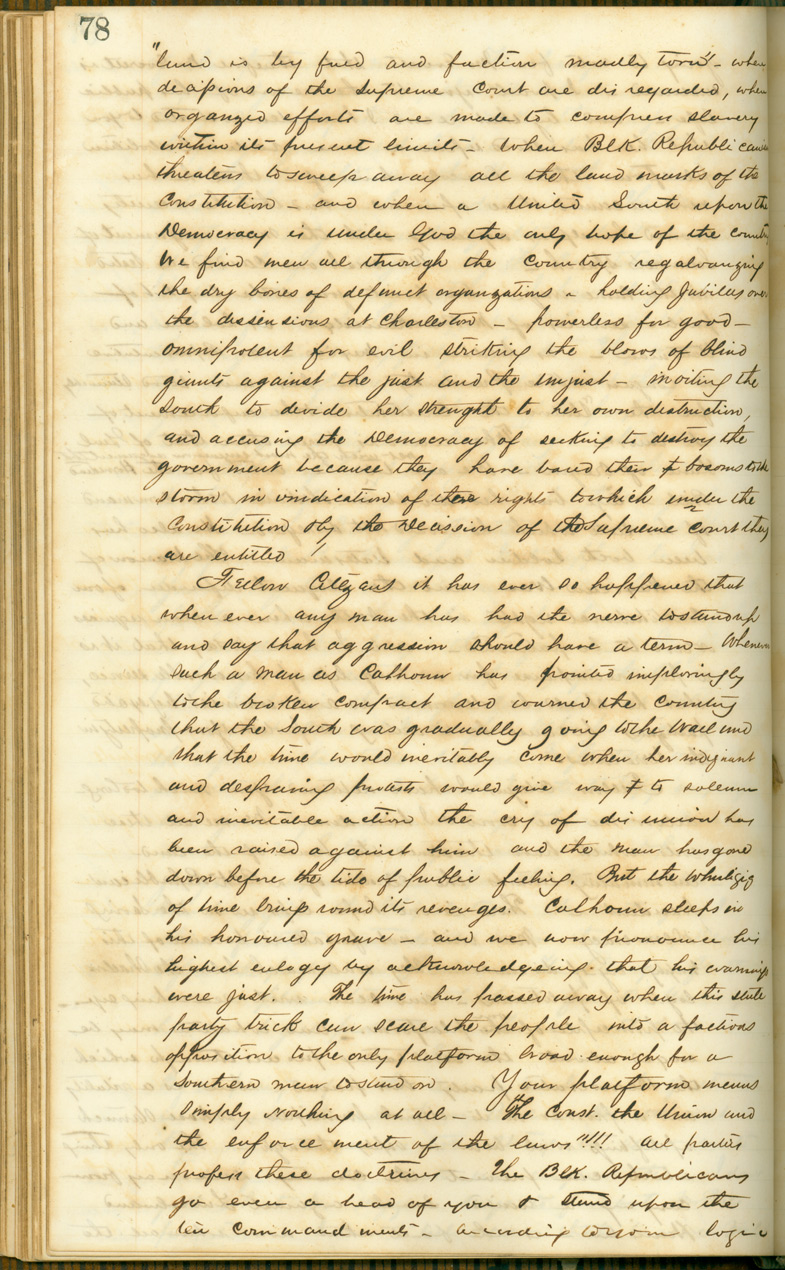 78
"land is by feud and faction madly torn" - when
decisions of the Supreme Court are disregarded, when
organized efforts are made to compress slavery
within its present limits - When Blk. Republicanism
threatens to sweep away all the land marks of the
Constitution - and when a United South upon the
Democracy is under God the only hope of the country
We find men all through the country regalvanizing
the dry bones of defunct organizations - holding Jubilus over
the dissensions at Charleston - powerless for good -
omnipotent for evil striking the blows of blind
giants against the just and the unjust - inviting the
South to devide her strenght to her own distruction,
and accusing the Democracy of seeking to destroy the
government because they have bared their bosoms to the
storm in vindication of those rights to which under the
Constitution & by the Decission of the Supreme Court they
are entitled !
Fellow Citizens it has ever so happened that
when ever any man has had the nerve to stand up
and say that aggression should have a term - Whenever
such a man as Calhoun has pointed imploringly
to the broken compact and warned the country
that the South was gradually going to the Wall and
that the time would inevitably come when her indignant
and despairing protests would give way to solemn
and inevitable action the cry of dis union has
been raised against him and the man has gone
down before the tide of public feeling. But the Whirligig
of time brings round its revenges. Calhoun sleeps in
his honoured grave - and we now pronounce his
highest eulogy by acknowledgeing that his warnings
were just. The time has passed away when this stale
party trick can scare the people into a factious
opposition to the only platform broad enough for a
Southern man to stand on. Your platform means
Simply Nothing at all - "The Const. the Union and
the enforcement of the laws"!!! All parties
profess these doctrines - The Blk. Republicans
go even a head of you & stand upon the
ten commandments - according to your logic